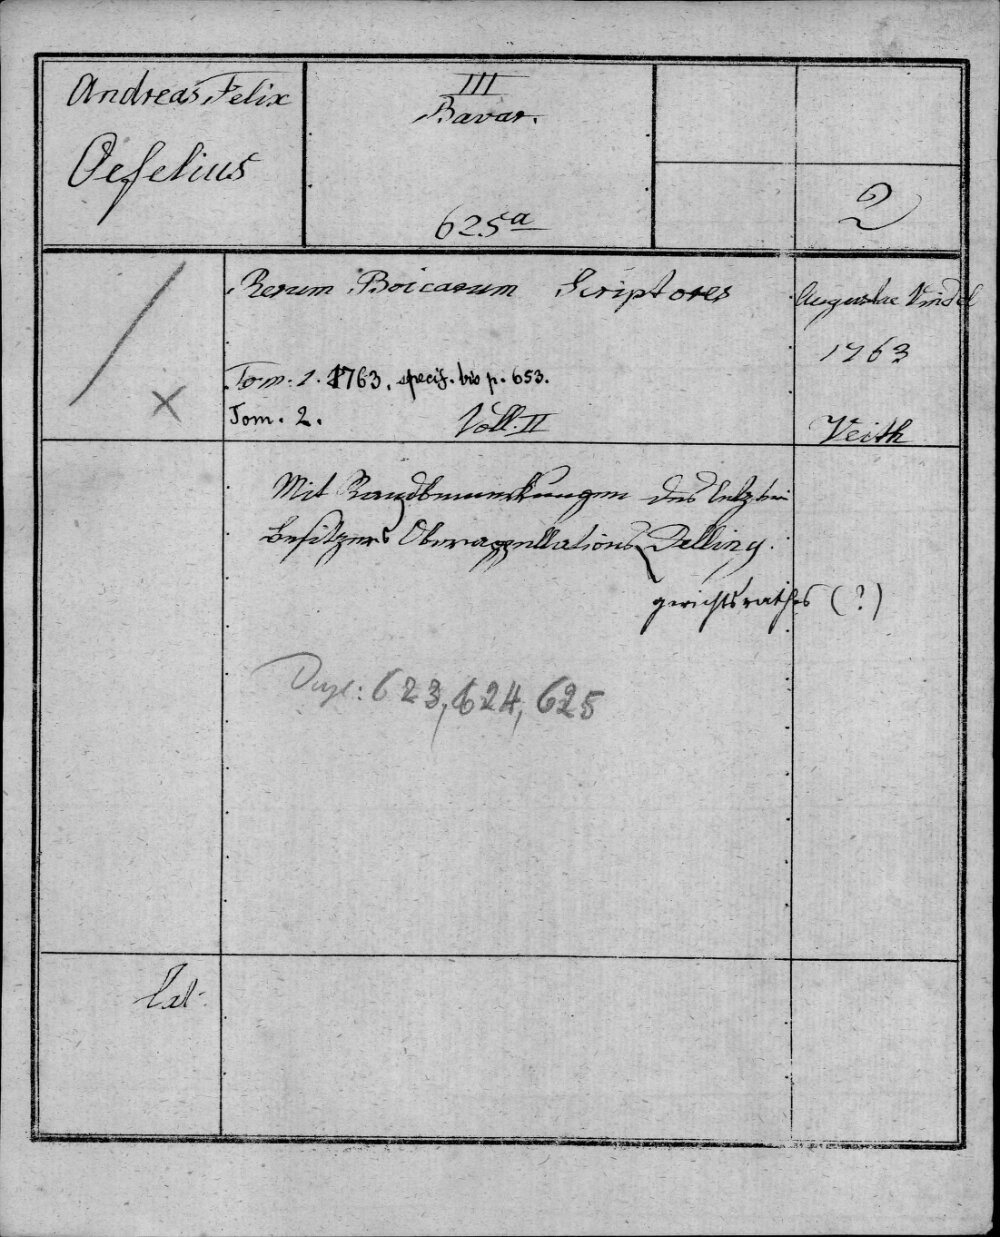 Andreas Felix
Oefelius
III
Bavar.
625a
2
Rerum Boicarum Scriptores
Augustae Vindel
1763
Tom: 1. 1763, specif. bis p. 653.
Tom. 2.
Voll. II
Veith
Mit Randbemerkungen des letzten
Besitzers Oberappellations Delling.
gerichtsrathes (?)
Dupl: 623, 624, 625
Lat.